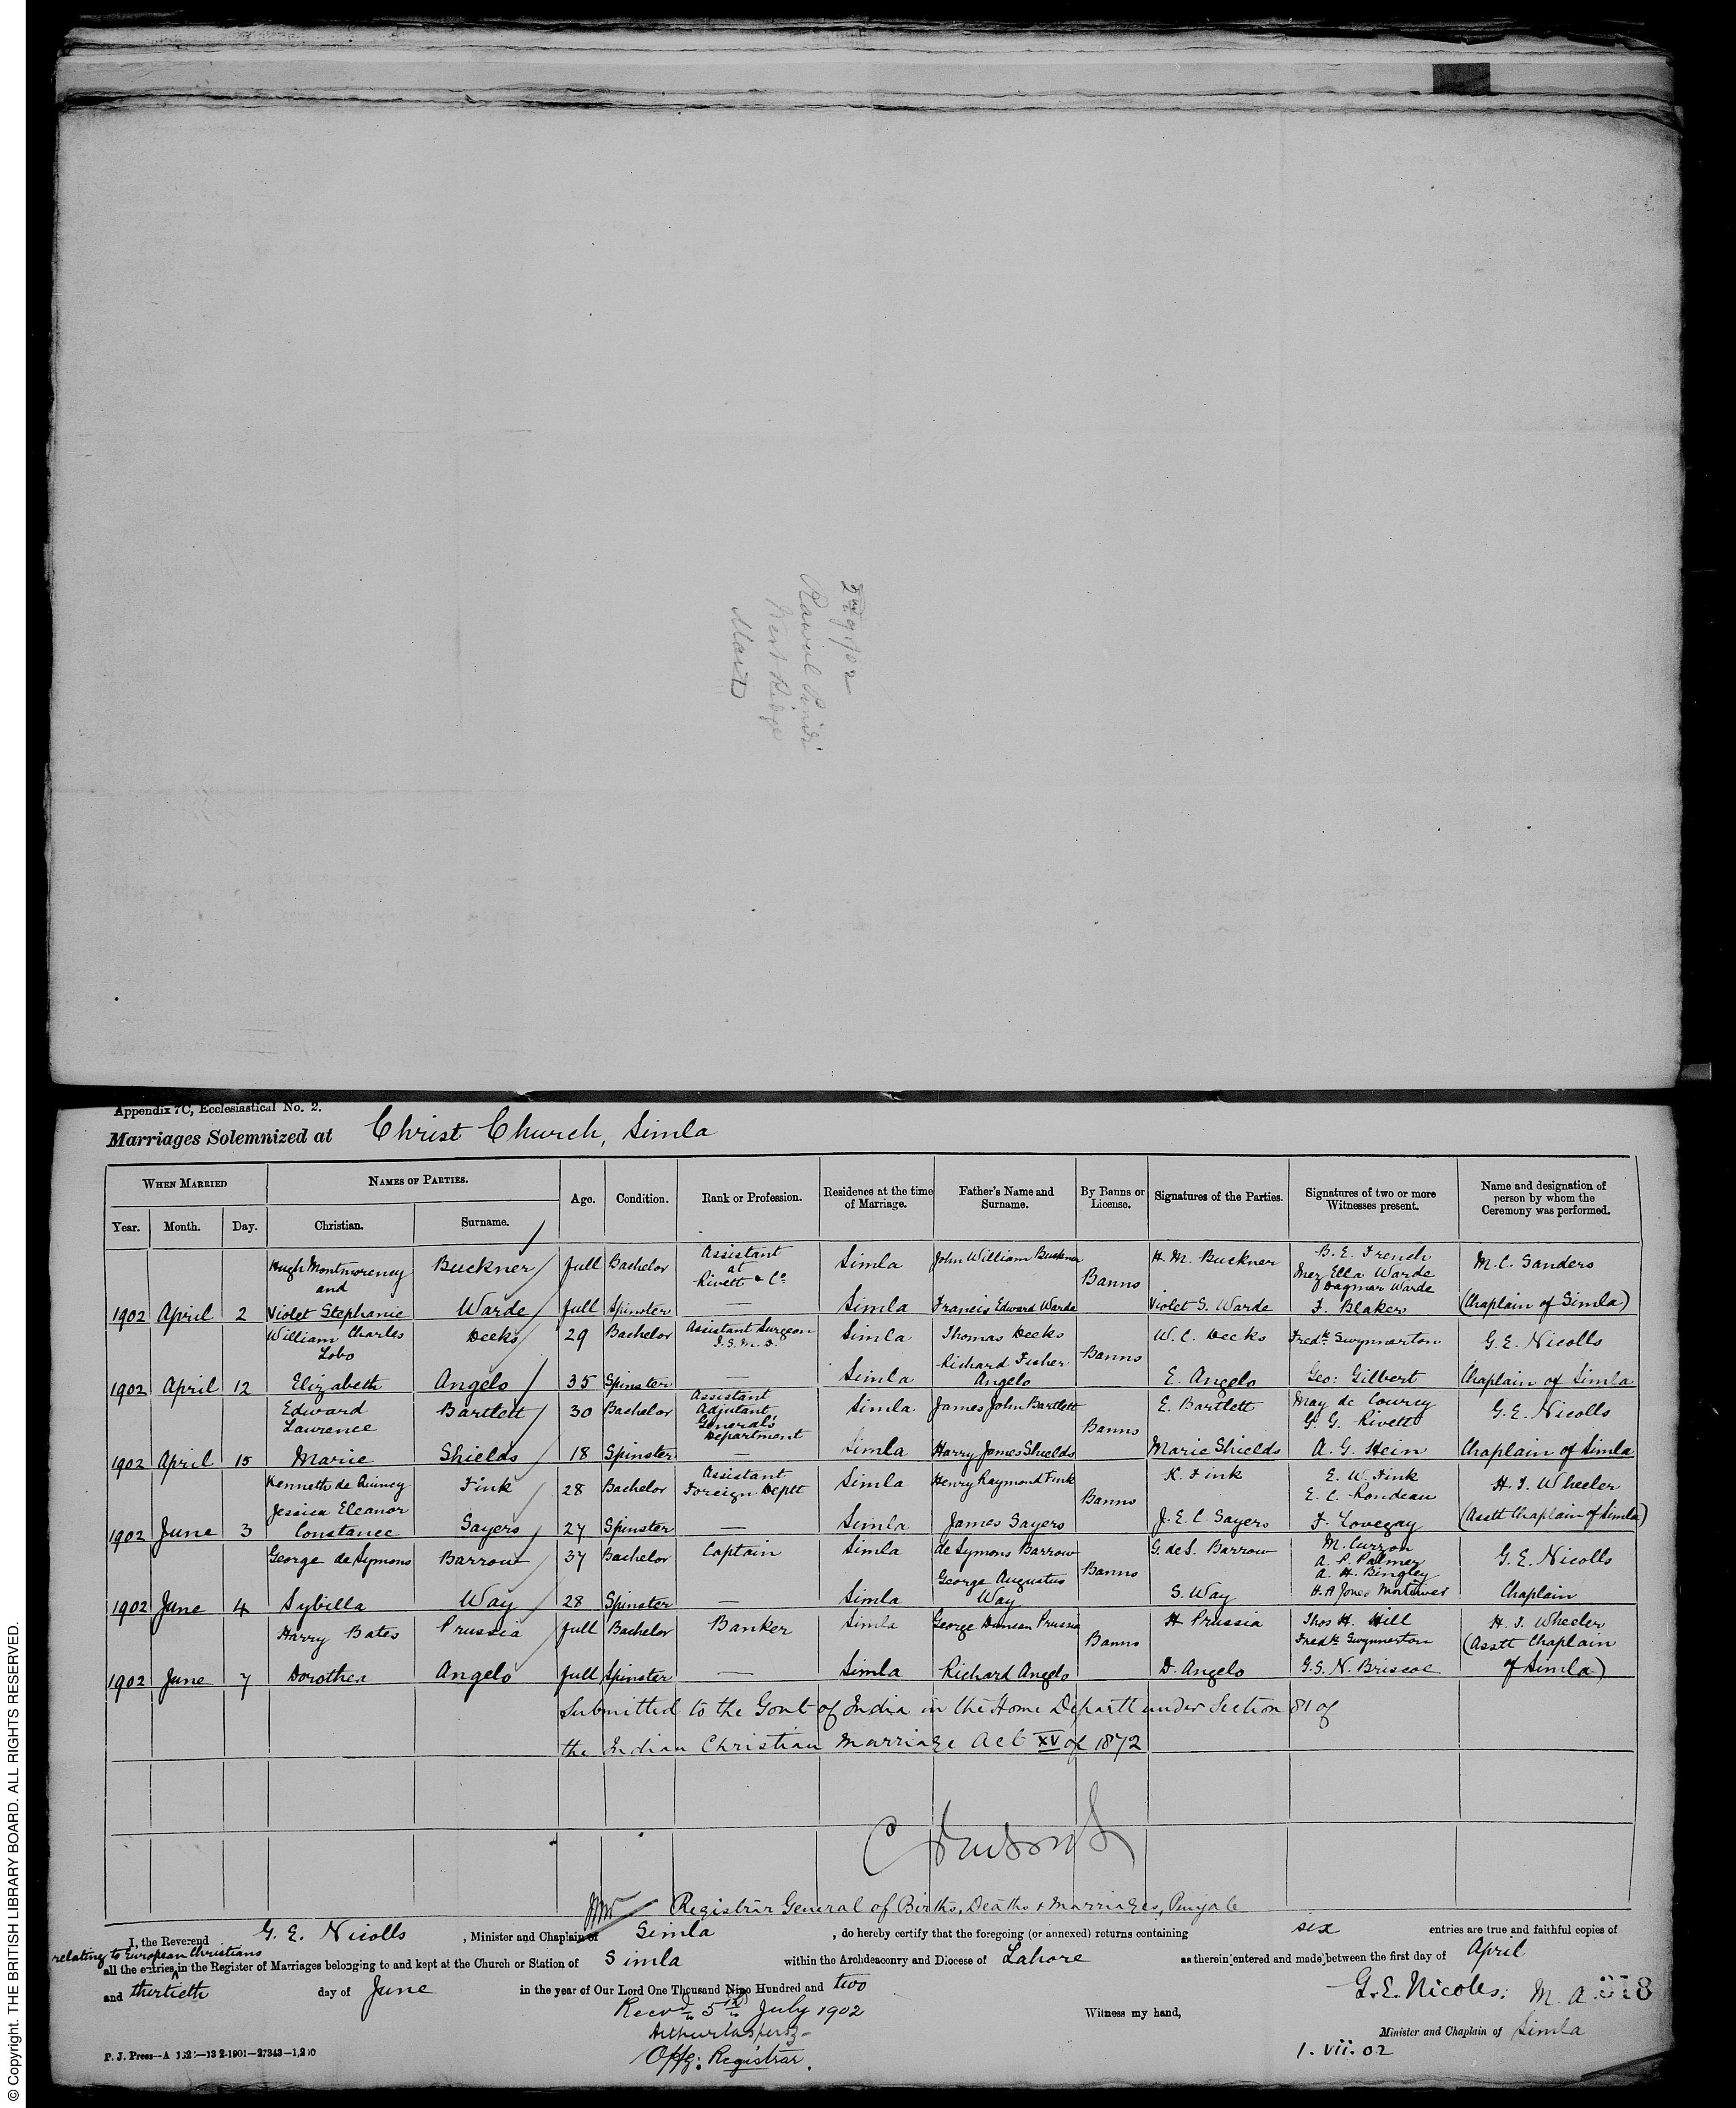 2nd qr 1902
Rawul Pindi
West Ridge
Marr
Appendix 7C, Ecclesiastical No. 2.
Marriages Solemnized at Christ Church, Simla
When Married
Names of Parties.
Age.
Condition.
Rank or Profession.
Residence at the time of Marriage.
Father's Name and Surname.
By Banns or License.
Signatures of the Parties.
Signatures of two or more Witnesses present.
Name and designation of person by whom the Ceremony was performed.
Year. Month. Day. Christian. Surname.
Hugh Montmorency and Buckner full Bachelor Assistant at Rivett & Co Simla John William Buckner Banns H. M. Buckner B. E. French Inez Ella Warde M. C. Sanders
1902 April 2 Violet Stephanie Warde full Spinster — Simla Francis Edward Warde Violet S. Warde Dagmar Warde F. Blaker (Chaplain of Simla)
William Charles Lobo Deeks 29 Bachelor Assistant Surgeon I.S.M.D. Simla Thomas Deeks Banns W. C. Deeks Fredk Gwynnerton G. E. Nicolls
1902 April 12 Elizabeth Angelo 35 Spinster — Simla Richard Fisher Angelo E. Angelo Geo: Gilbert Chaplain of Simla
Edward Laurence Bartlett 30 Bachelor Assistant Adjutant General's Department Simla James John Bartlett Banns E. Bartlett May de Courcy G. G. Rivett G. E. Nicolls
1902 April 15 Marie Shields 18 Spinster — Simla Harry James Shields Marie Shields A. G. Hein Chaplain of Simla
Kenneth de Quincy Fink 28 Bachelor Assistant Foreign Deptt Simla Henry Raymond Fink Banns K. Fink E. W. Fink E. C. Rondeau H. T. Wheeler
1902 June 3 Jessica Eleanor Constance Sayers 27 Spinster — Simla James Sayers J. E. C. Sayers F. Lovegay (Asstt Chaplain of Simla)
George de Symons Barrow 37 Bachelor Captain Simla de Symons Barrow Banns G. de S. Barrow M. Curzon A. P. Palmer A. H. Bingley G. E. Nicolls
1902 June 4 Sybilla Way 28 Spinster — Simla George Augustus Way S. Way H. A Jones Mortimer Chaplain
Harry Bates Prussia full Bachelor Banker Simla George Duncan Prussia Banns H Prussia Thos H. Hill Fredk Gwynnerton H. T. Wheeler
1902 June 7 Dorothea Angelo full Spinster — Simla Richard Angelo D. Angelo G. S. N. Briscoe (Asstt Chaplain of Simla)
Submitted to the Govt of India in the Home Departt under Section 81 of
the Indian Christian Marriage Act XV of 1872
Registrar General of Births, Deaths & Marriages, Punjab
I, the Reverend G. E. Nicolls, Minister and Chaplain of Simla, do hereby certify that the foregoing (or annexed) returns containing six entries are true and faithful copies of
relating to European Christians
all the entries in the Register of Marriages belonging to and kept at the Church or Station of Simla within the Archdeaconry and Diocese of Lahore as therein entered and made between the first day of April
and thirtieth day of June in the year of Our Lord One Thousand Nine Hundred and two
G. E. Nicolls: M. A. 318
Recvd 5th July 1902
Witness my hand,
Minister and Chaplain of Simla
Offg: Registrar.
1. vii. 02
© Copyright. THE BRITISH LIBRARY BOARD. ALL RIGHTS RESERVED.